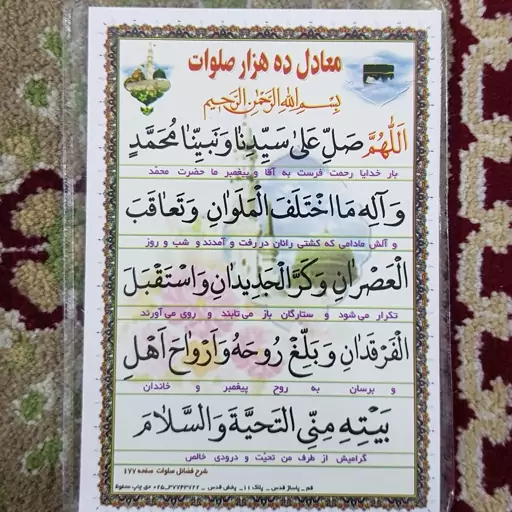 معادل ده هزار صلوات
بِسْمِ اللهِ الرَّحْمٰنِ الرَّحِيمِ
اَللّٰهُمَّ صَلِّ عَلىٰ سَيِّدِنا وَ نَبِيِّنا مُحَمَّدٍ
بار خدایا رحمت فرست به آقا و پیغمبر ما حضرت محمد
وَ آلِهِ مَا اخْتَلَفَ الْمَلَوانِ وَ تَعاقَبَ
و آلش مادامی که کشتی رانان در رفت و آمدند و شب و روز
الْعَصْرانِ وَ كَرَّ الْجَدِيدانِ وَ اسْتَقْبَلَ
تکرار می شود و ستارگان باز می تابند و روی می آورند
الْفَرْقَدانِ وَ بَلِّغْ رُوحَهُ وَ اَرْواحَ اَهْلِ
و برسان به روح پیغمبر و خاندان
بَيْتِهِ مِنِّى التَّحِيَّةَ وَ السَّلامَ
گرامیش از طرف من تحیّت و درودی خالص
شرح فضائل صلوات صفحه ۱۷۷
قم _ پاساژ قدس _ پلاک ۱۱۰ _ پخش قدس _ ۳۷۷۴۳۶۲۲-۰۲۵ حق چاپ محفوظ